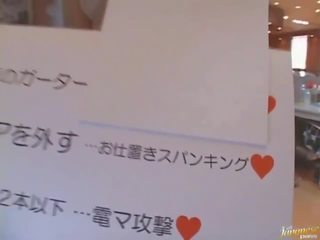 のガーター
を外す …お仕置きスパンキング♥
2本以下 …電マ攻撃♥